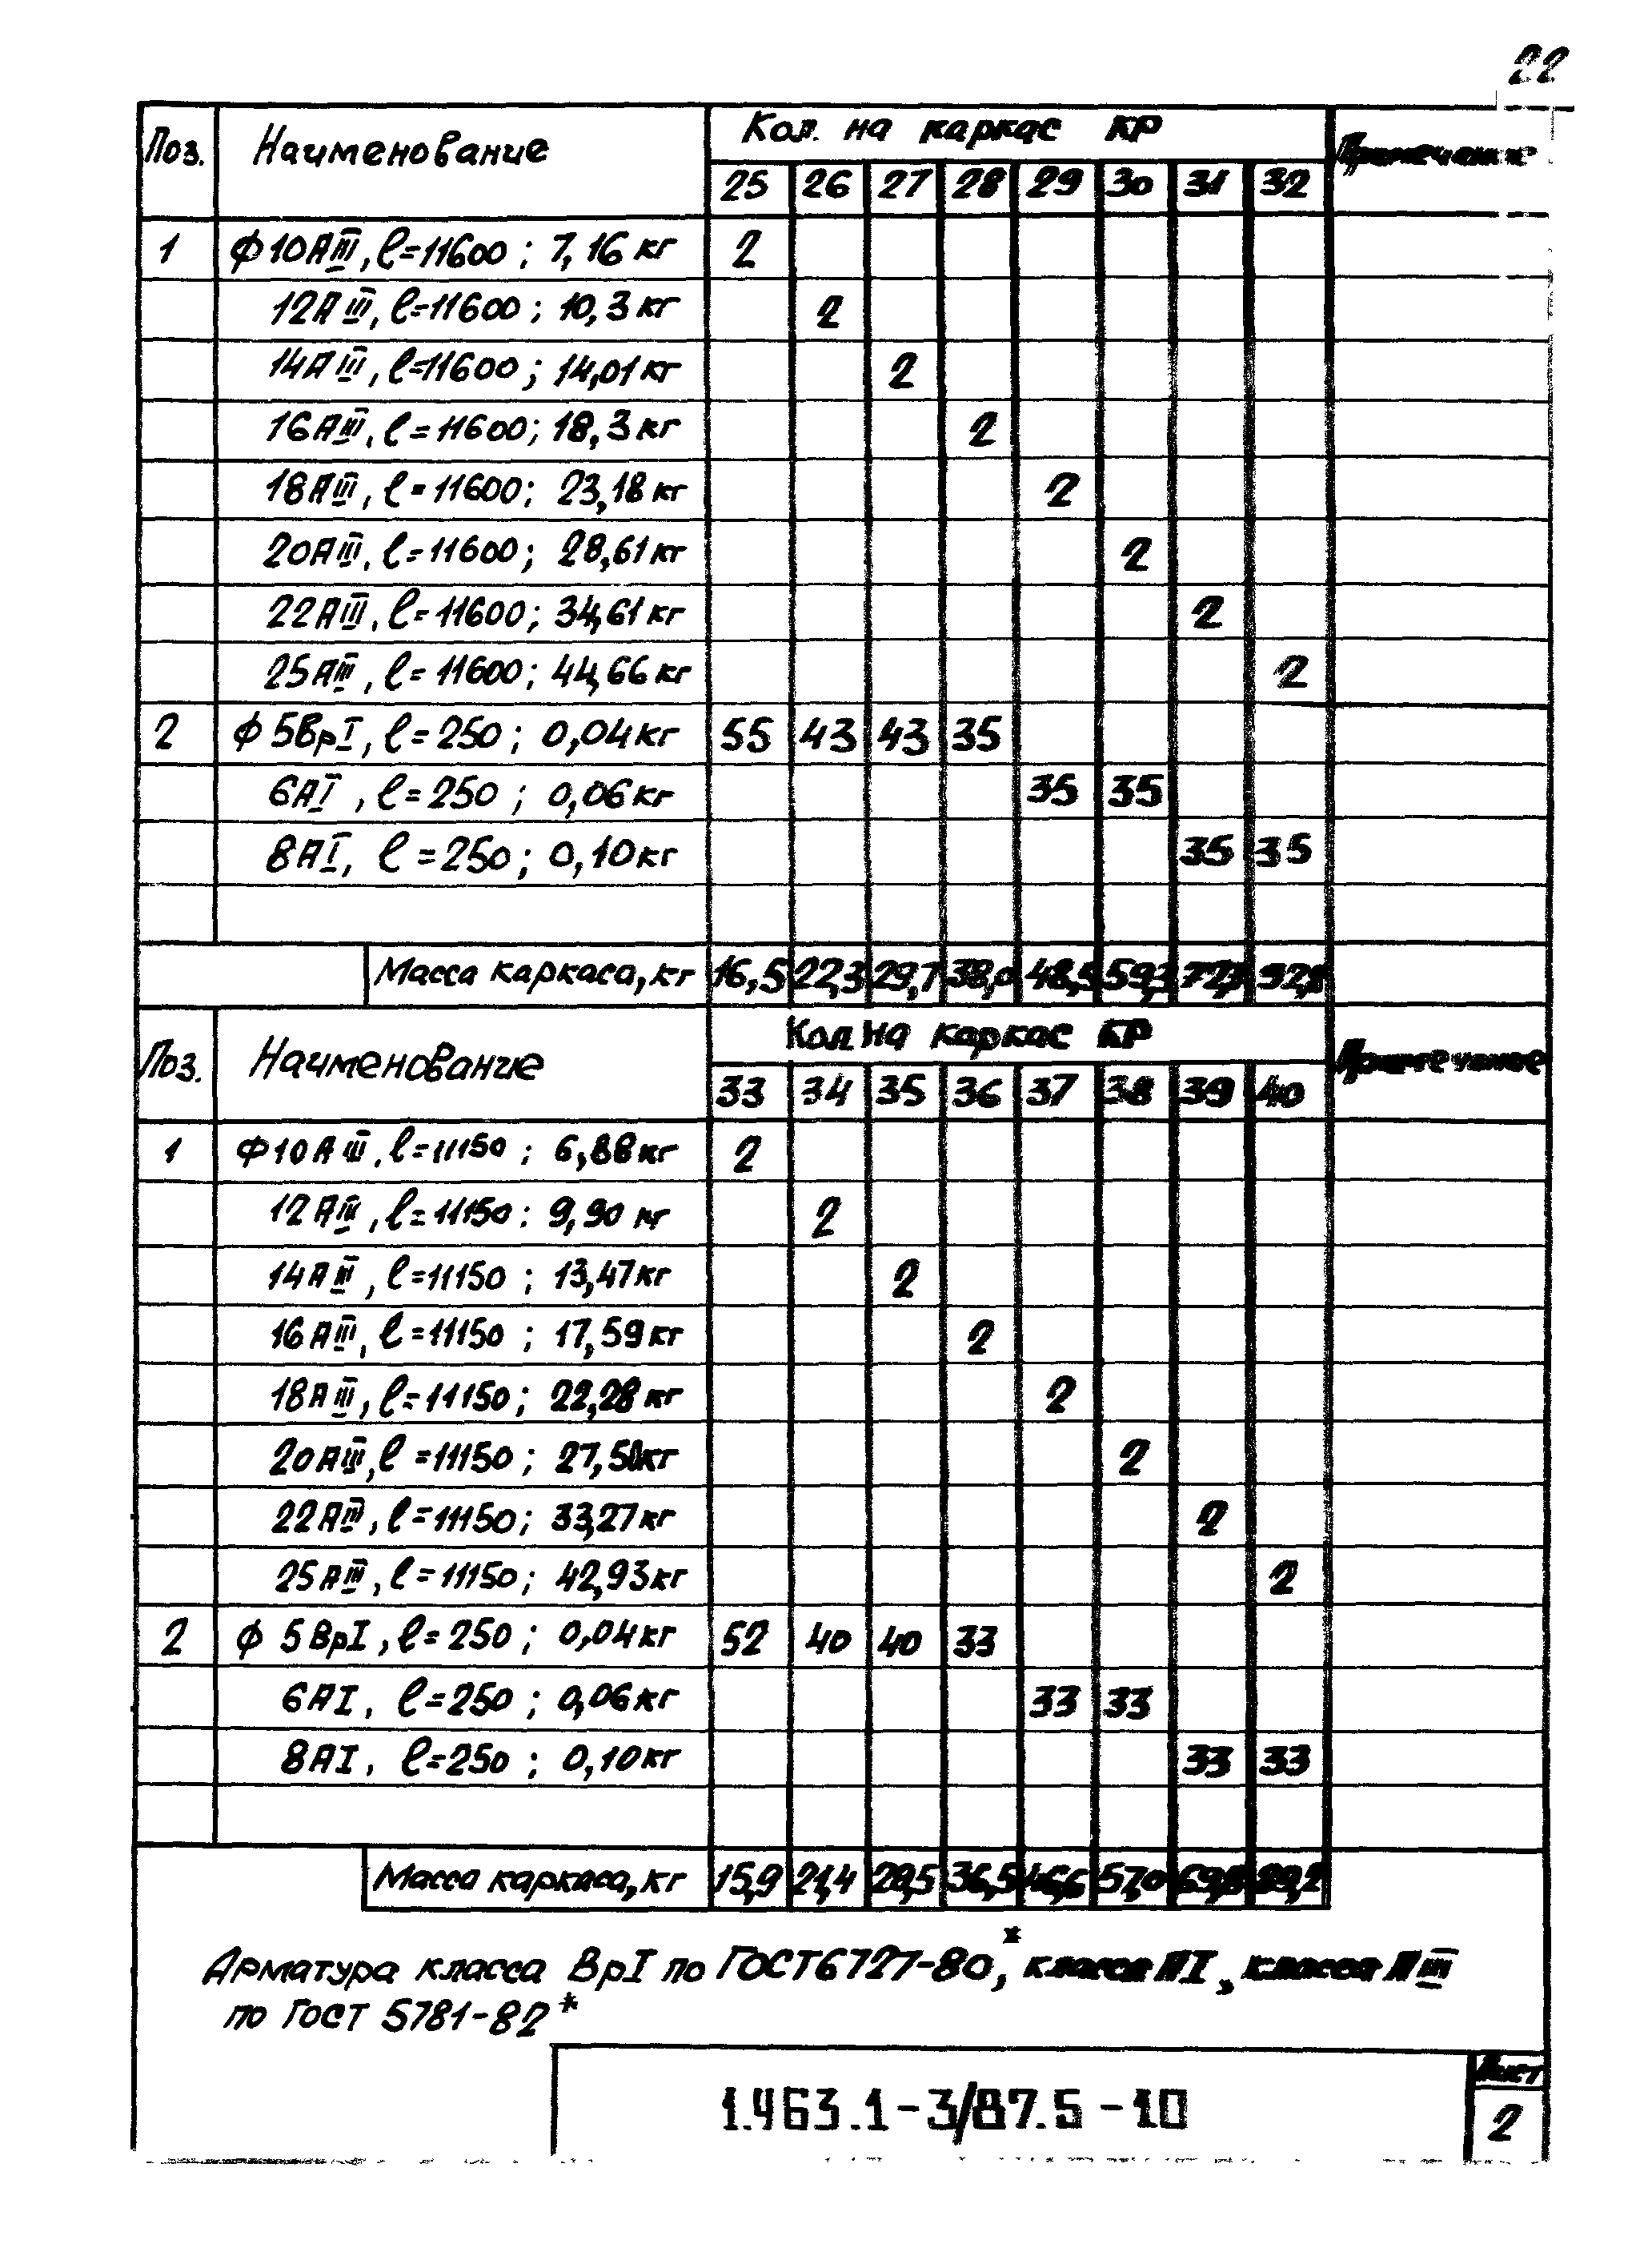 22
Поз. Наименование Кол. на каркас КР Примечание
25 26 27 28 29 30 31 32
1 ф10АIII, ℓ=11600; 7,16 кг 2
12АIII, ℓ=11600; 10,3 кг 2
14АIII, ℓ=11600; 14,01 кг 2
16АIII, ℓ=11600; 18,3 кг 2
18АIII, ℓ=11600; 23,18 кг 2
20АIII, ℓ=11600; 28,61 кг 2
22АIII, ℓ=11600; 34,61 кг 2
25АIII, ℓ=11600; 44,66 кг 2
2 ф 5ВрI, ℓ=250; 0,04 кг 55 43 43 35
6АI, ℓ=250; 0,06 кг 35 35
8АI, ℓ=250; 0,10 кг 35 35
Масса каркаса, кг 16,5 22,3 29,7 38,0 48,5 59,3
Поз. Наименование Кол. на каркас КР Примечание
33 34 35 36 37 38 39 40
1 ф10АIII, ℓ=11150; 6,88 кг 2
12АIII, ℓ=11150; 9,90 кг 2
14АIII, ℓ=11150; 13,47 кг 2
16АIII, ℓ=11150; 17,59 кг 2
18АIII, ℓ=11150; 22,28 кг 2
20АIII, ℓ=11150; 27,50 кг 2
22АIII, ℓ=11150; 33,27 кг 2
25АIII, ℓ=11150; 42,93 кг 2
2 ф 5ВрI, ℓ=250; 0,04 кг 52 40 40 33
6АI, ℓ=250; 0,06 кг 33 33
8АI, ℓ=250; 0,10 кг 33 33
Масса каркаса, кг 15,9 21,4 28,5 36,5 46,6 57,0
Арматура класса ВрI по ГОСТ 6727-80*, класса АI, класса АIII
по ГОСТ 5781-82*
1.463.1-3/87.5-10
Лист
2